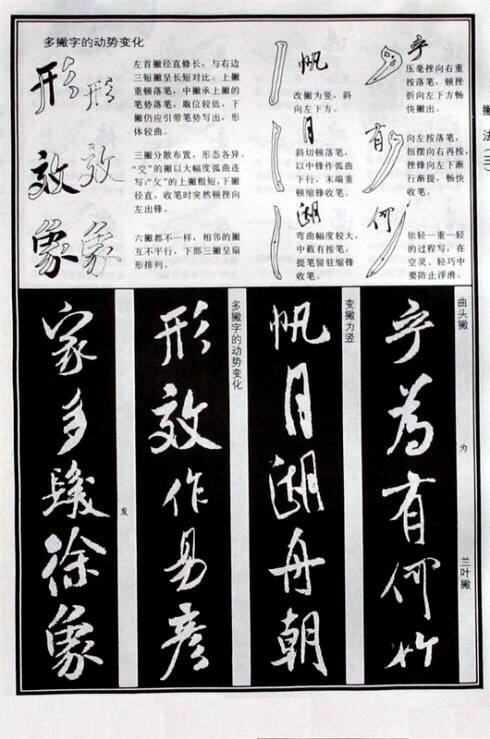 多撇字的动势变化
形形
左首撇径直修长，与右边
三短撇呈长短对比。上撇
重顿落笔，中撇承上撇的
笔势落笔，取位较低，下
撇仍应引带笔势写出，形
体较曲。
效效
三撇分散布置，形态各异。
“交”的撇以大幅度弧曲连
写；“攵”的上撇粗短，下撇
径直，收笔时突然顿挫向
左出锋。
象象
六撇都不一样，相邻的撇
互不平行，下部三撇呈扇
形排列。
帆
改撇为竖，斜
向左下方。
月
斜切顿落笔，
以中锋作弧曲
下行，末端重
顿缩锋收笔。
湖
弯曲幅度较大，
中截有按笔，
提笔留驻缩锋
收笔。
乎
压毫挫向右重
按落笔，顿挫
折向左下方畅
快撇出。
有
向左按落笔，
扭摆向右再按，
挫锋向左下撇
行渐提，畅快
收笔。
何
依轻—重—轻
的过程写，在
空灵、轻巧中
要防止浮滑。
撇法(三)
曲头撇
为
兰叶撇
乎为有何竹
变撇为竖
帆月湖舟朝
多撇字的动势变化
形效作易彦
发
家多
徐象